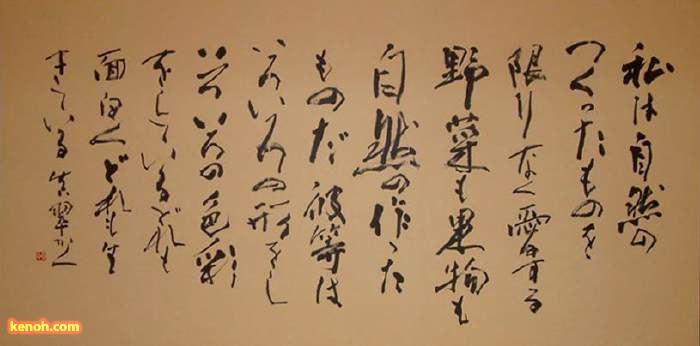 私は自然の
つくったものを
限りなく愛する
野菜も果物も
自然の作った
ものだ彼等は
いろいろの形をし
いろいろの色彩
をしているどれも
面白くどれも生
きている
kenoh.com